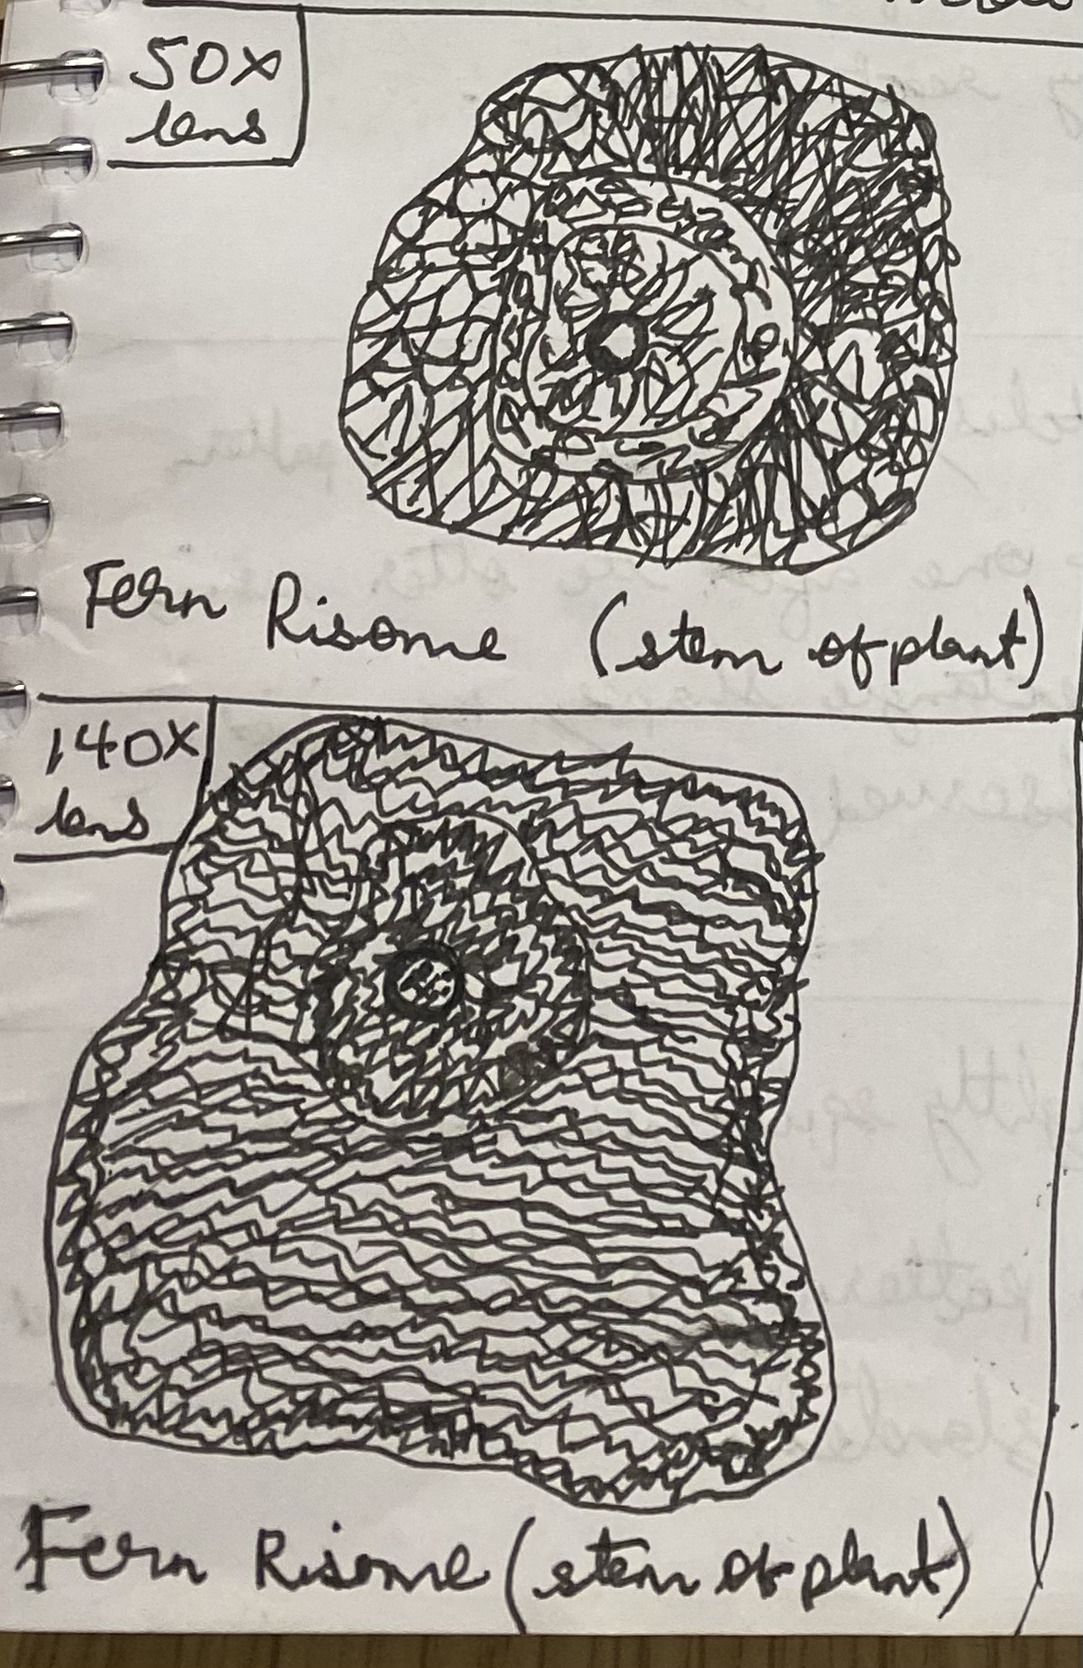 50x
lens
Fern Risome (stem of plant)
140x
lens
Fern Risome (stem of plant)